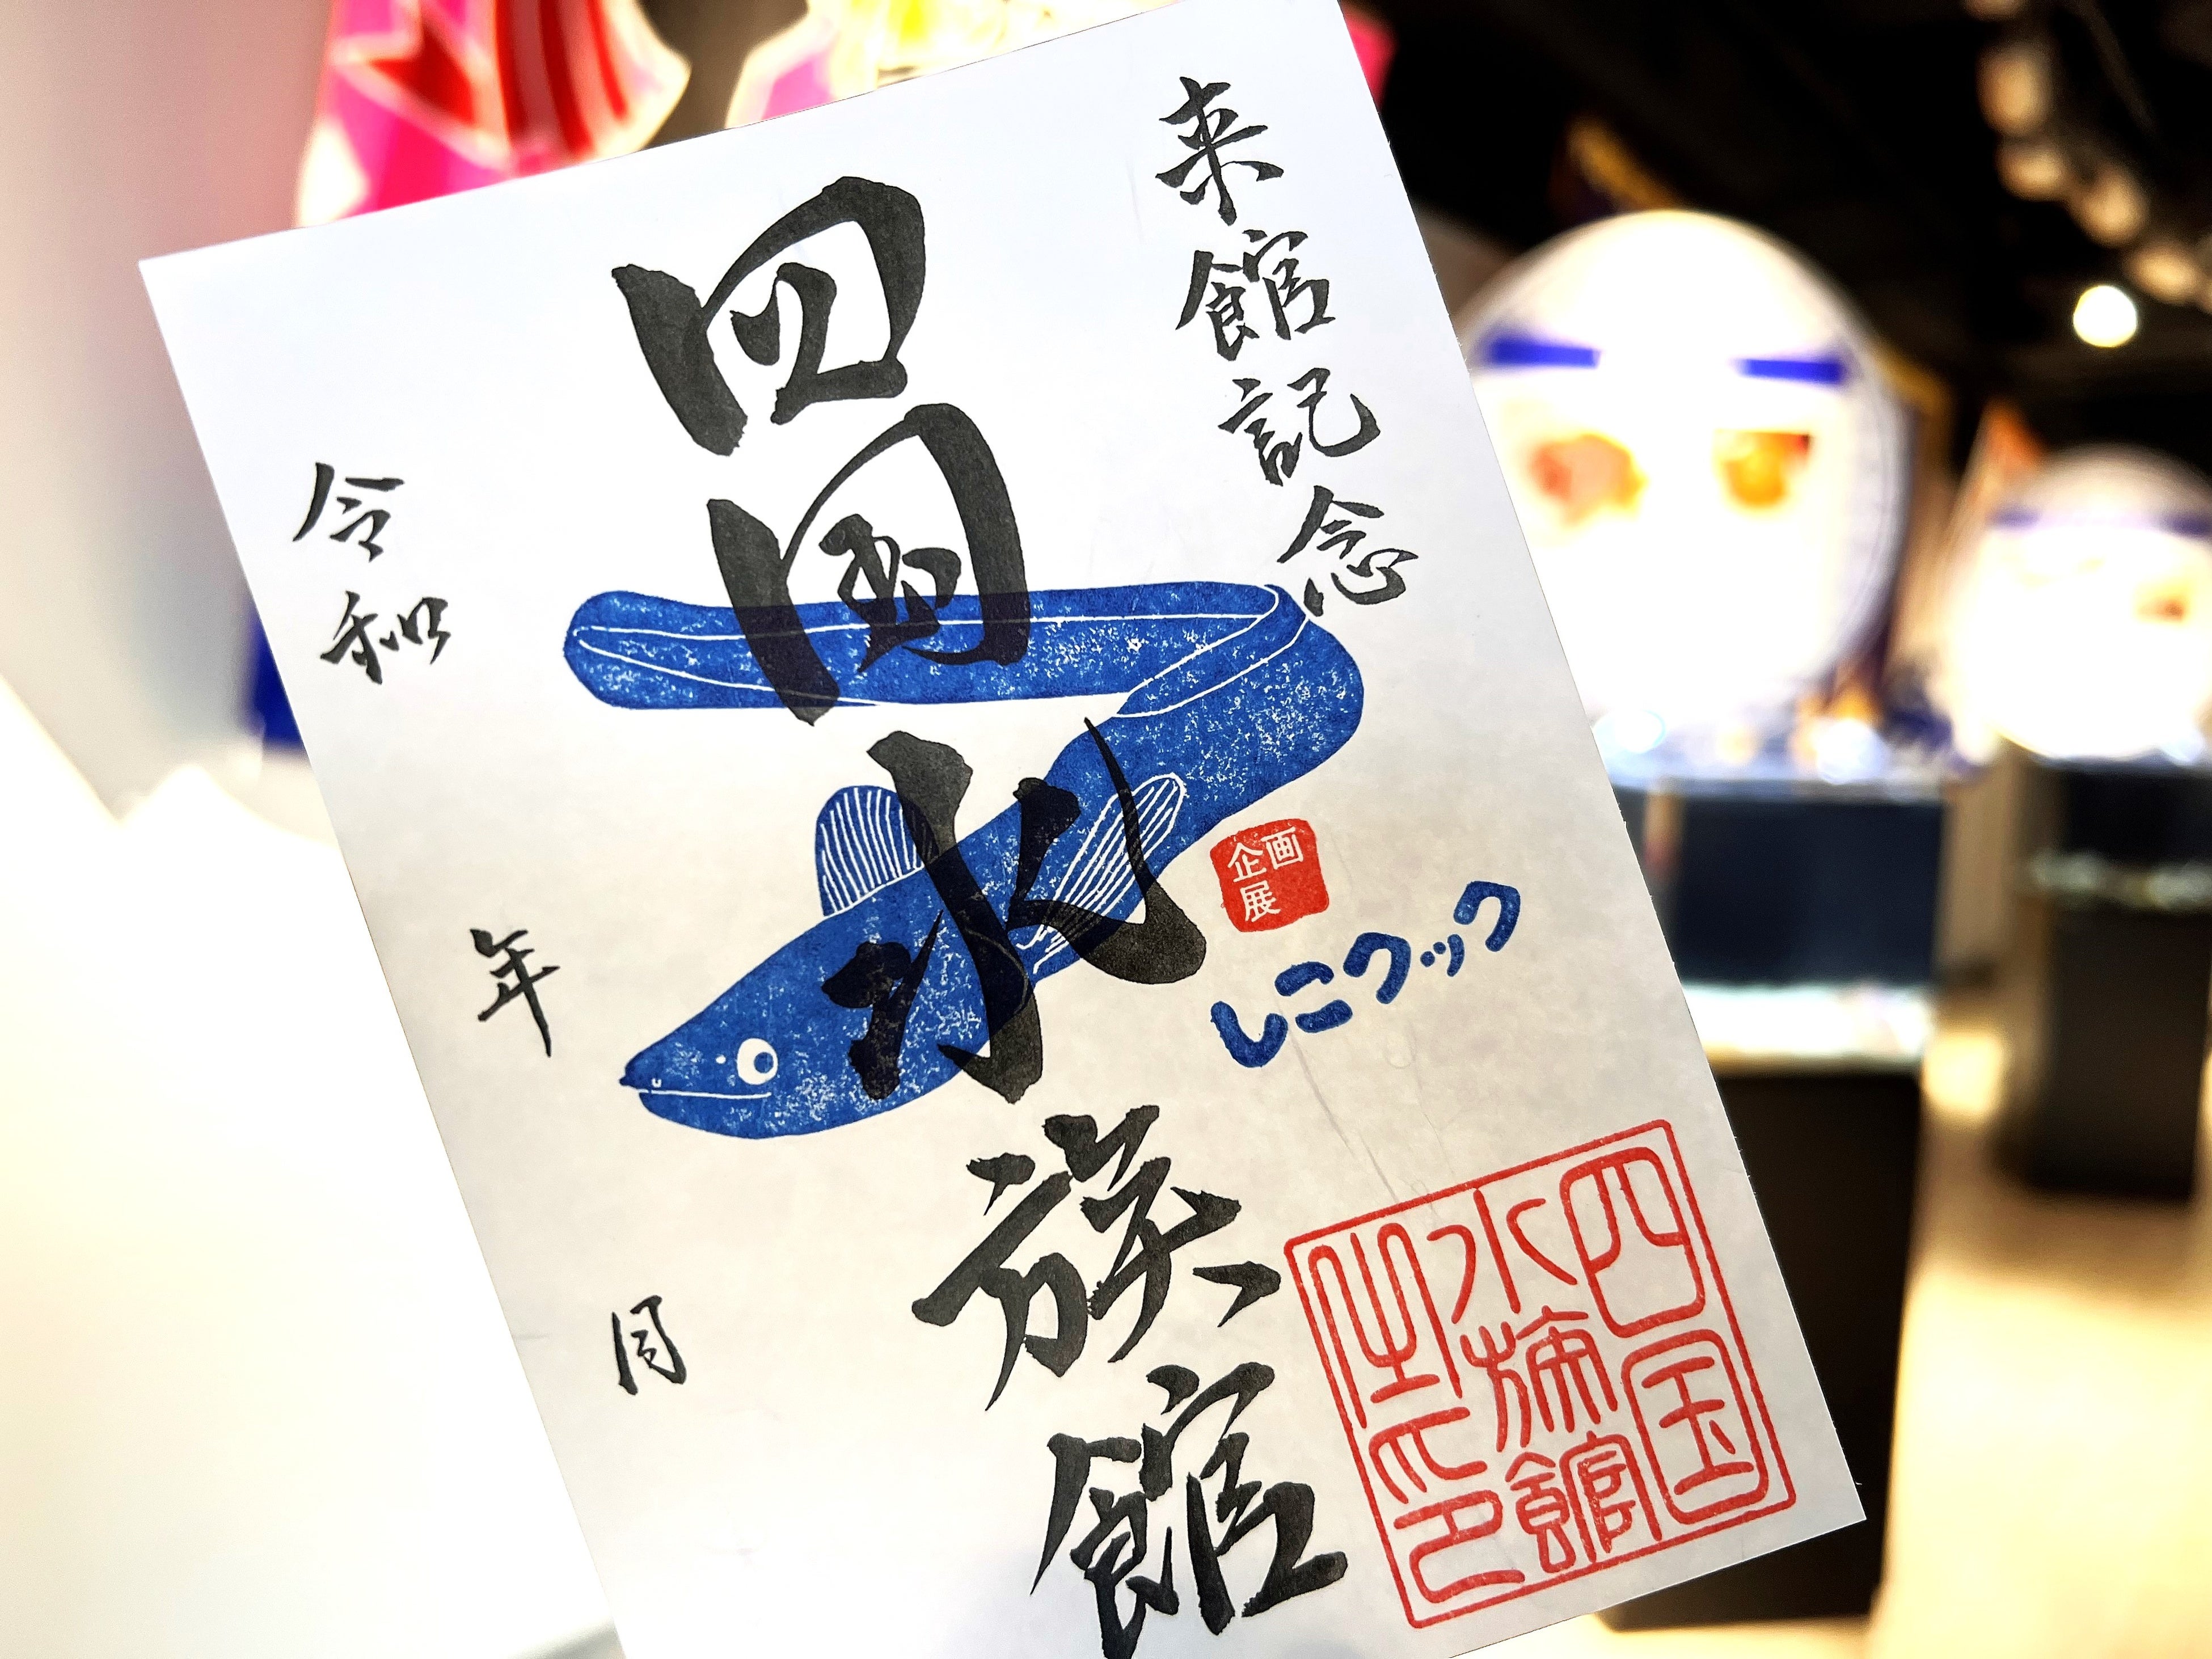 来館記念
四国水族館
企画展
しこクック
四国
水族館
之印
令和 年 月